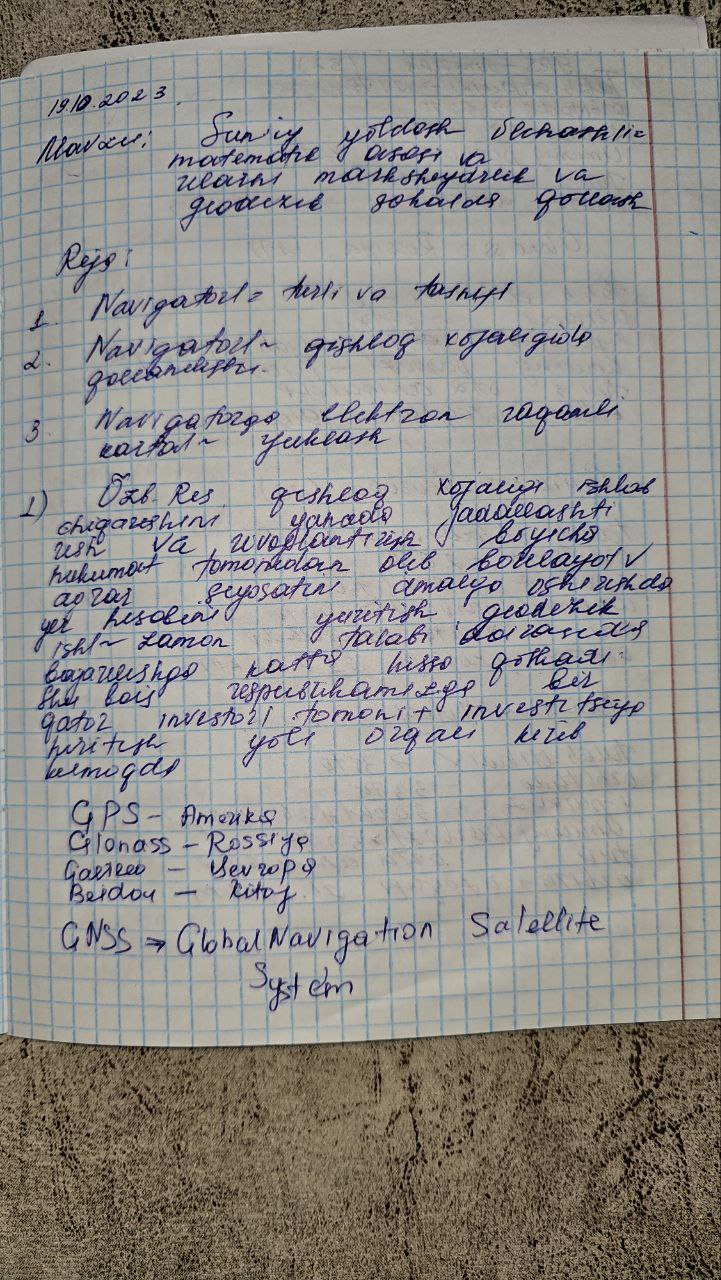 19.10.2023
Mavzu: Sun'iy yo'ldosh o'lchashl=
matematik asosi va
ularni marksheyderlik va
geodezik sohalda qo'llash
Reja:
1. Navigatorl= turli va tasnifi
2. Navigatorl~ qishloq xo'jaligida
qo'llanilishi.
3. Navigatorga elektron raqamli
kartal~ yuklash
1) Õzb. Res. qishloq xo'jaligi ishlab
chiqarishini yanada jadallashti
rish va rivojlantirish bo'yicha
hukumat tomonidan olib borilayot
agrar siyosatini amalga oshirishda
yer hisobini yuritish geodezik
ishl~ zamon talabi doirasida
bajarilishga katta hissa qo'shadi.
Shu bois respublikamizga bir
qator investorl tomoni+ investitsiya
kiritish yo'li orqali kirib
kelmoqda
GPS – Amerika
Glonass – Rossiya
Galileo – Yevropa
Beidou – Xitoy
GNSS → Global Navigation Satellite
System